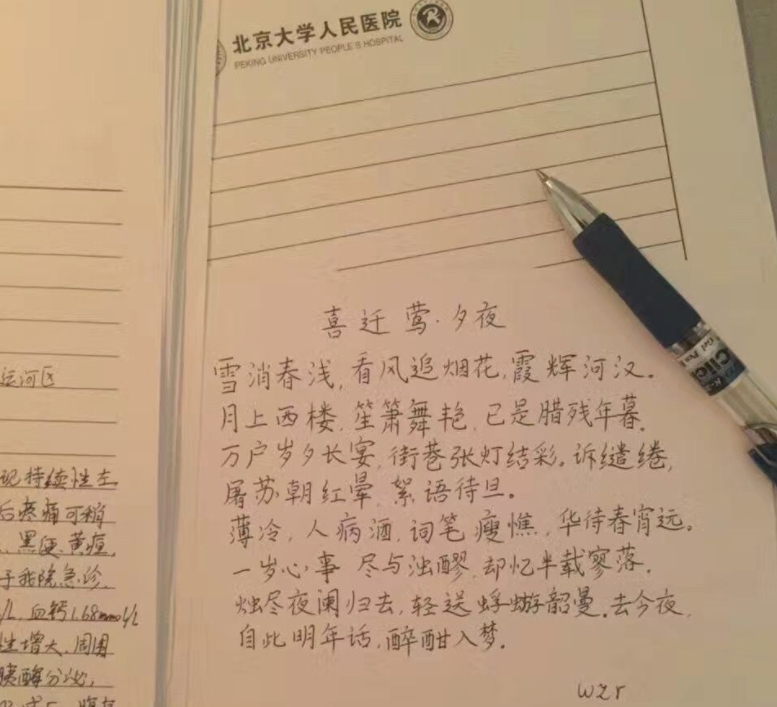 北京大学人民医院
PEKING UNIVERSITY PEOPLE'S HOSPITAL
喜迁莺·夕夜
雪消春浅,看风追烟花,霞辉河汉。
月上西楼,笙箫舞艳,已是腊残年暮。
万户岁夕长宴,街巷张灯结彩。诉缱绻,
屠苏朝红晕,絮语待旦。
薄冷,人病酒,词笔瘦憔,华待春宵远。
一岁心事 尽与浊醪,却忆半载寥落。
烛尽夜阑归去,轻送蜉蝣韶曼。去今夜,
自此明年话,醉酣入梦。
wzr
运河区
现持续性左
后疼痛可稍
、黑便、黄疸,
于我院急诊,
/L,血钙1.68mmol/L
性增大,周围
胰酶分泌,